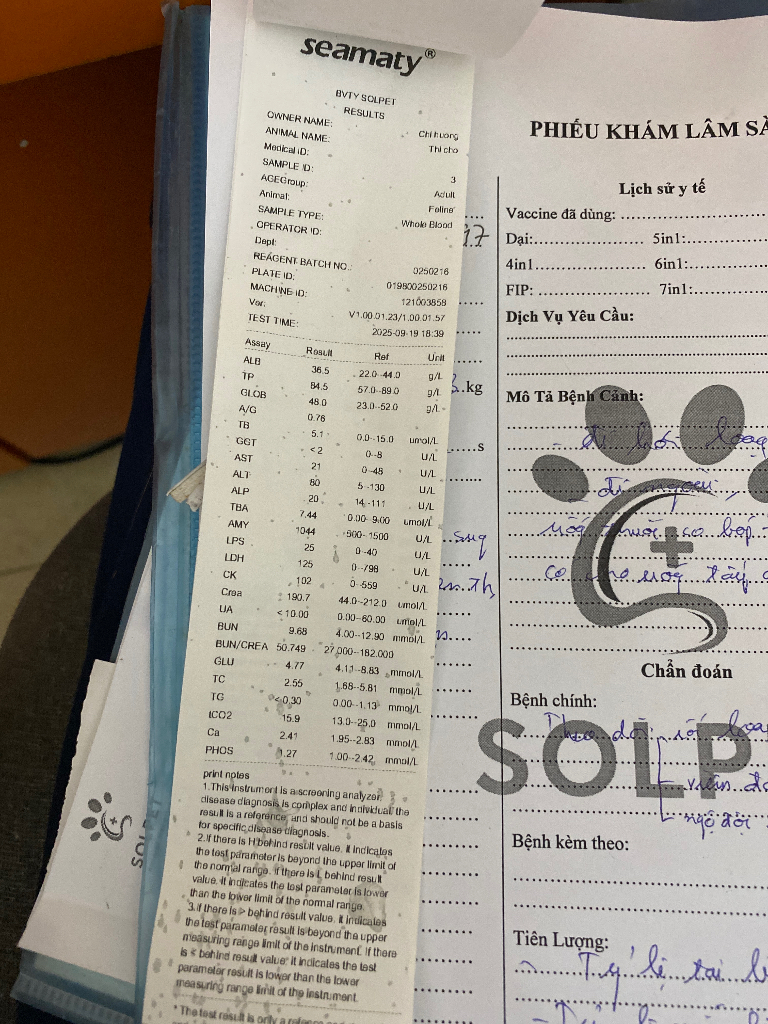 seamaty®
BVTY SOLPET
RESULTS
OWNER NAME: Chi huong
ANIMAL NAME: Thi cho
Medical ID:
SAMPLE ID: 3
AGEGroup: Adult
Animal: Feline
SAMPLE TYPE: Whole Blood
OPERATOR ID:
Dept:
REAGENT BATCH NO.: 0250216
PLATE ID: 019800250216
MACHINE ID: 121003858
Ver: V1.00.01.23/1.00.01.57
TEST TIME: 2025-09-19 18:39
Assay Result Ref Unit
ALB 36.5 22.0--44.0 g/L
TP 84.5 57.0--89.0 g/L
GLOB 48.0 23.0--52.0 g/L
A/G 0.76
TB 5.1 0.0--15.0 umol/L
GGT <2 0--8 U/L
AST 21 0--48 U/L
ALT 80 5--130 U/L
ALP 20 14--111 U/L
TBA 7.44 0.00--9.00 umol/L
AMY 1044 500--1500 U/L
LPS 25 0--40 U/L
LDH 125 0--798 U/L
CK 102 0--559 U/L
Crea 190.7 44.0--212.0 umol/L
UA <10.00 0.00--60.00 umol/L
BUN 9.68 4.00--12.90 mmol/L
BUN/CREA 50.749 27.000--182.000
GLU 4.77 4.11--8.83 mmol/L
TC 2.55 1.68--5.81 mmol/L
TG <0.30 0.00--1.13 mmol/L
tCO2 15.9 13.0--25.0 mmol/L
Ca 2.41 1.95--2.83 mmol/L
PHOS 1.27 1.00--2.42 mmol/L
print notes
1.This instrument is a screening analyzer,
disease diagnosis is complex and individual, the
result is a reference, and should not be a basis
for specific disease diagnosis.
2.If there is H behind result value, it indicates
the test parameter is beyond the upper limit of
the normal range. if there is L behind result
value, it indicates the test parameter is lower
than the lower limit of the normal range.
3.If there is > behind result value, it indicates
the test parameter result is beyond the upper
measuring range limit of the instrument. If there
is < behind result value, it indicates the test
parameter result is lower than the lower
measuring range limit of the instrument.
* The test result is only a
17
kg
s
PHIẾU KHÁM LÂM
Lịch sử y tế
Vaccine đã dùng:
Dại: 5in1:
4in1 6in1:
FIP: 7in1:
Dịch Vụ Yêu Cầu:
Mô Tả Bệnh Cảnh:
Chẩn đoán
Bệnh chính:
Theo dõi
viêm
SOLP
Bệnh kèm theo:
Tiên Lượng:
Tỷ lệ